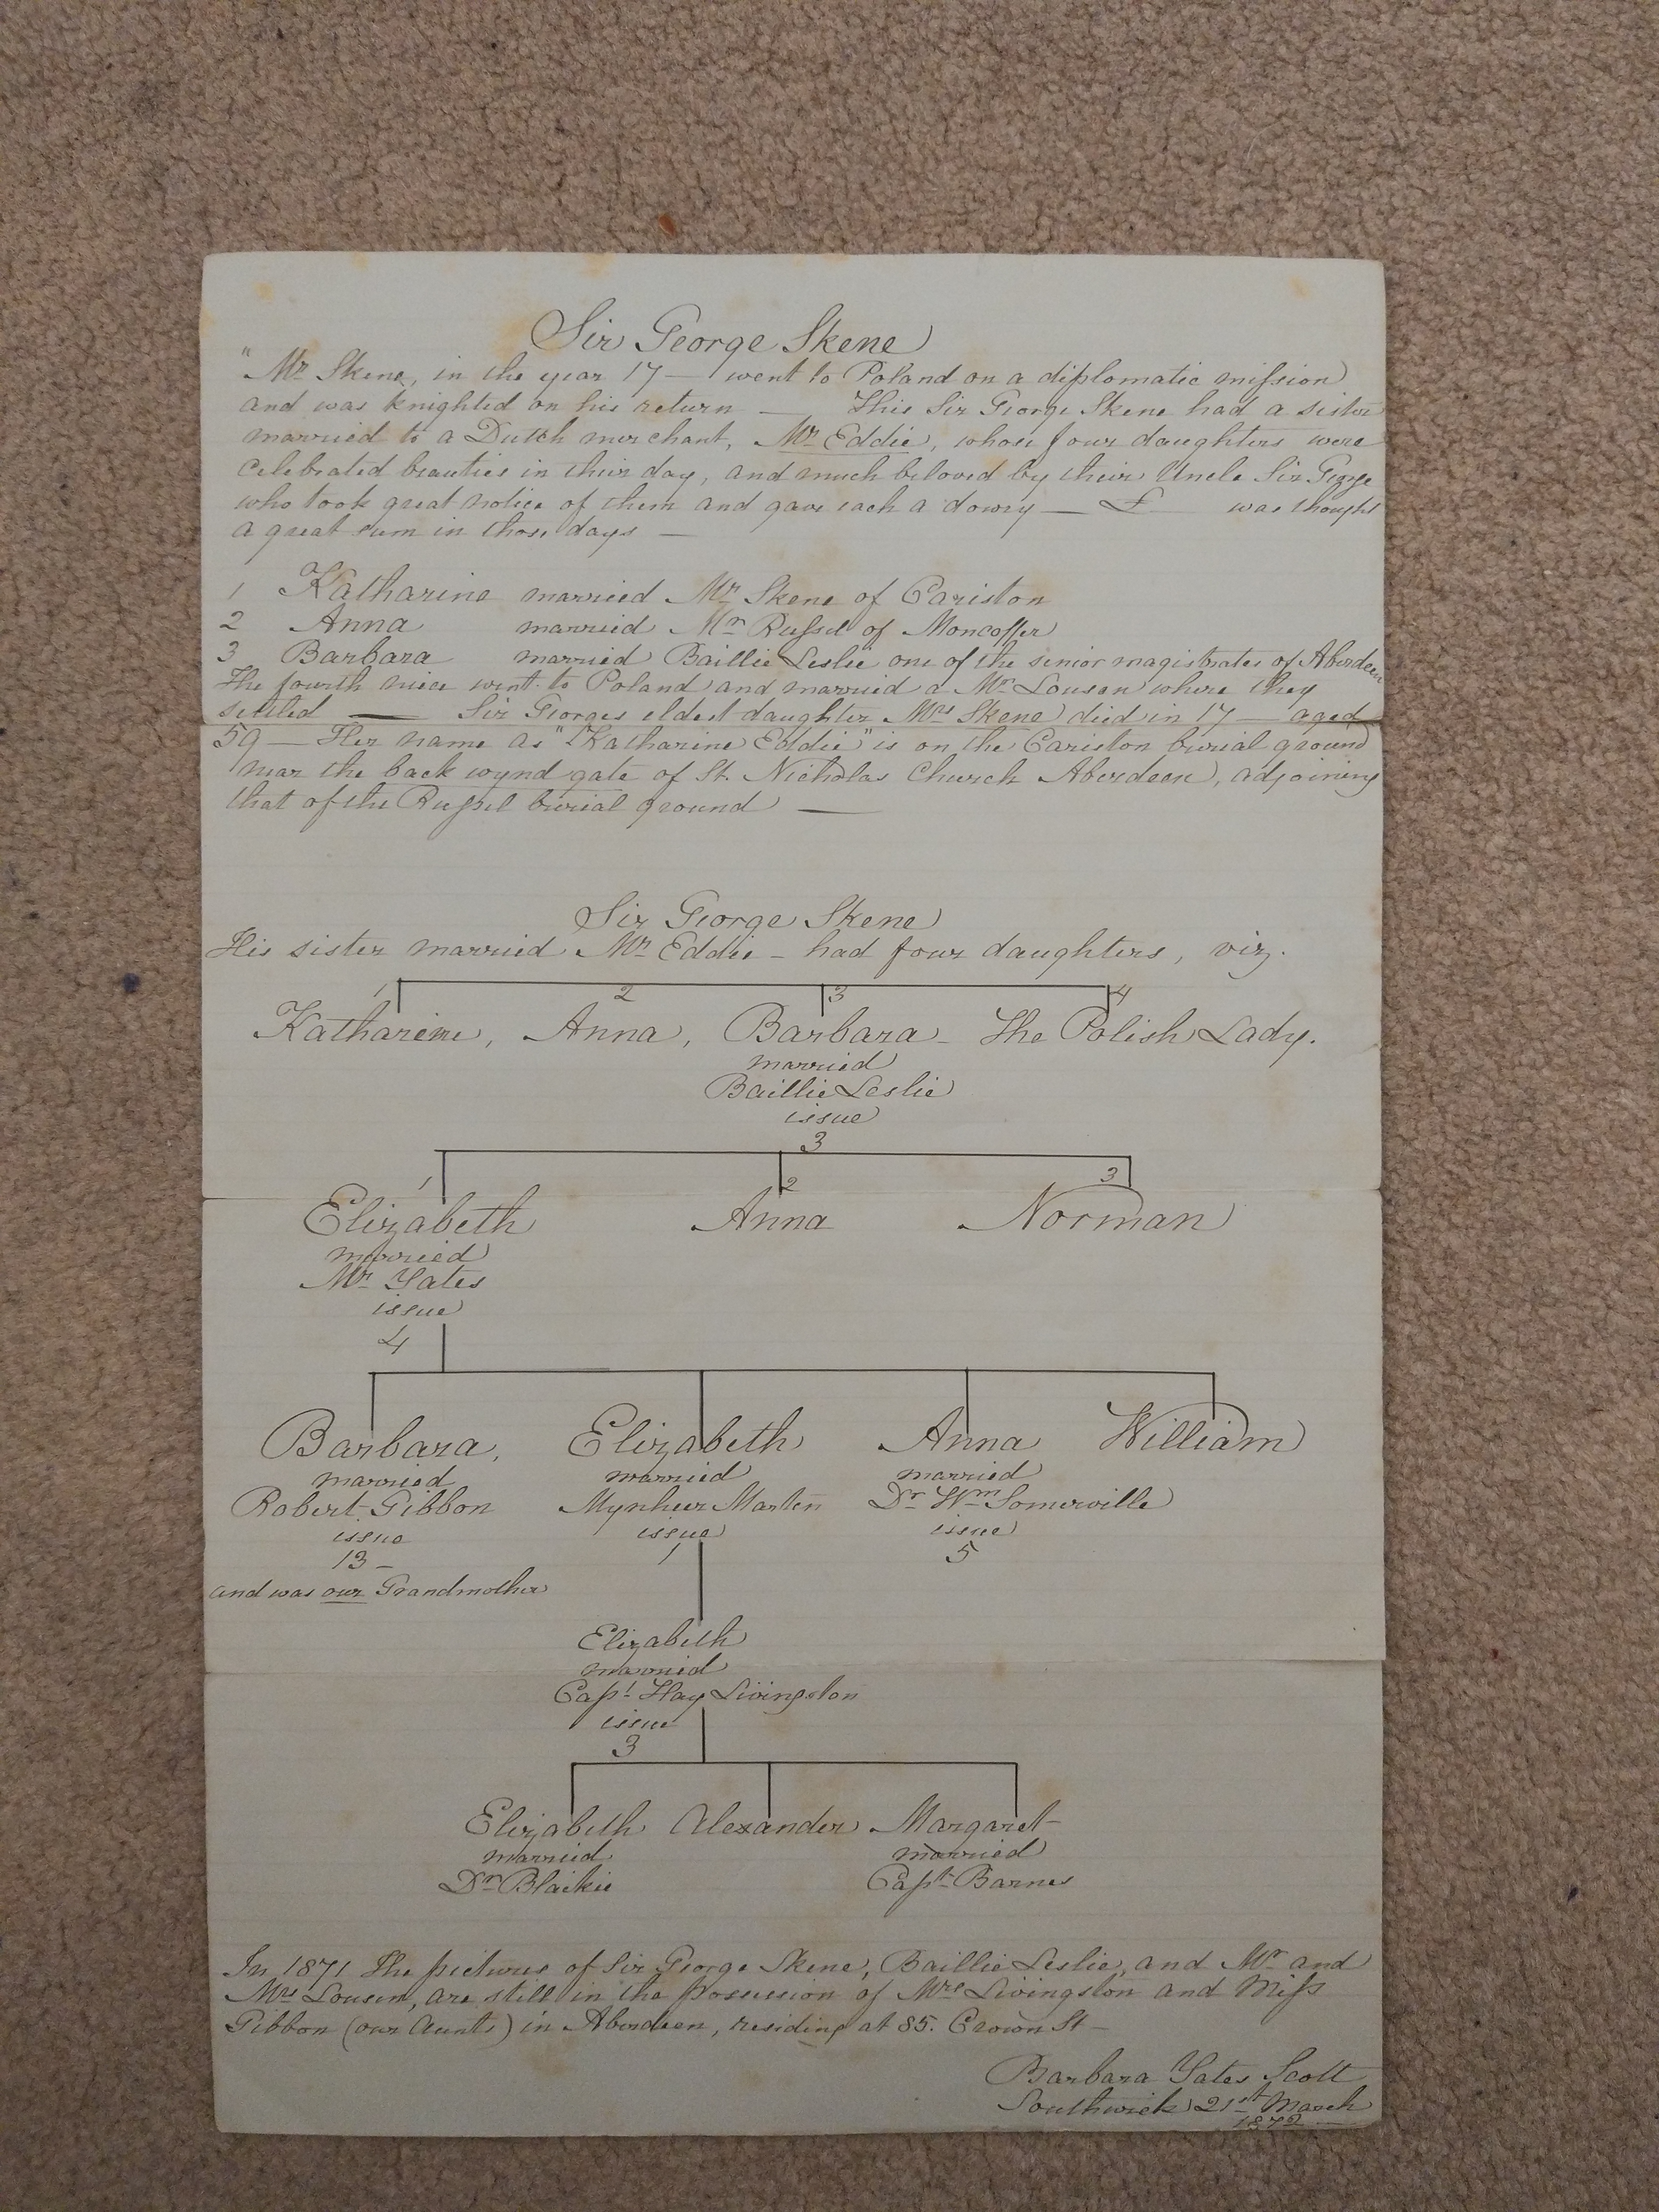 Sir George Skene
"Mr Skene, in the year 17— went to Poland on a diplomatic mission
and was knighted on his return — This Sir George Skene had a sister
married to a Dutch merchant, Mr Eddie, whose four daughters were
celebrated beauties in their day, and much beloved by their Uncle Sir George
who took great notice of them and gave each a dowry — £ was thought
a great sum in those days —
1 Katharine married Mr Skene of Cariston
2 Anna married Mr Russel of Moncoffer
3 Barbara married Baillie Leslie one of the senior magistrates of Aberdeen
The fourth niece went to Poland and married a Mr Lousen where they
settled — Sir Georges eldest daughter Mrs Skene died in 17— aged
59 — Her name as "Katharine Eddie" is on the Cariston burial ground
near the back wynd gate of St. Nicholas Church Aberdeen, adjoining
that of the Russel burial ground —
Sir George Skene
His sister married Mr Eddie – had four daughters, viz.
1 2 3 4
Katharine, Anna, Barbara – The Polish Lady.
married
Baillie Leslie
issue
3
1 2 3
Elizabeth Anna Norman
married
Mr Yates
issue
4
Barbara, Elizabeth Anna William
married married married
Robert Gibbon Mynheer Marten Dr Wm Somerville
issue issue issue
13 – 1 5
and was our Grandmother
Elizabeth
married
Capt Hay Livingston
issue
3
Elizabeth Alexander Margaret
married married
Dr Blaikie Capt Barnes
In 1871 The pictures of Sir George Skene, Baillie Leslie, and Mr and
Mrs Lousen, are still in the possession of Mrs Livingston and Miss
Gibbon (our Aunts) in Aberdeen, residing at 85. Crown St –
Barbara Yates Scott
Southwick 21st March
1872